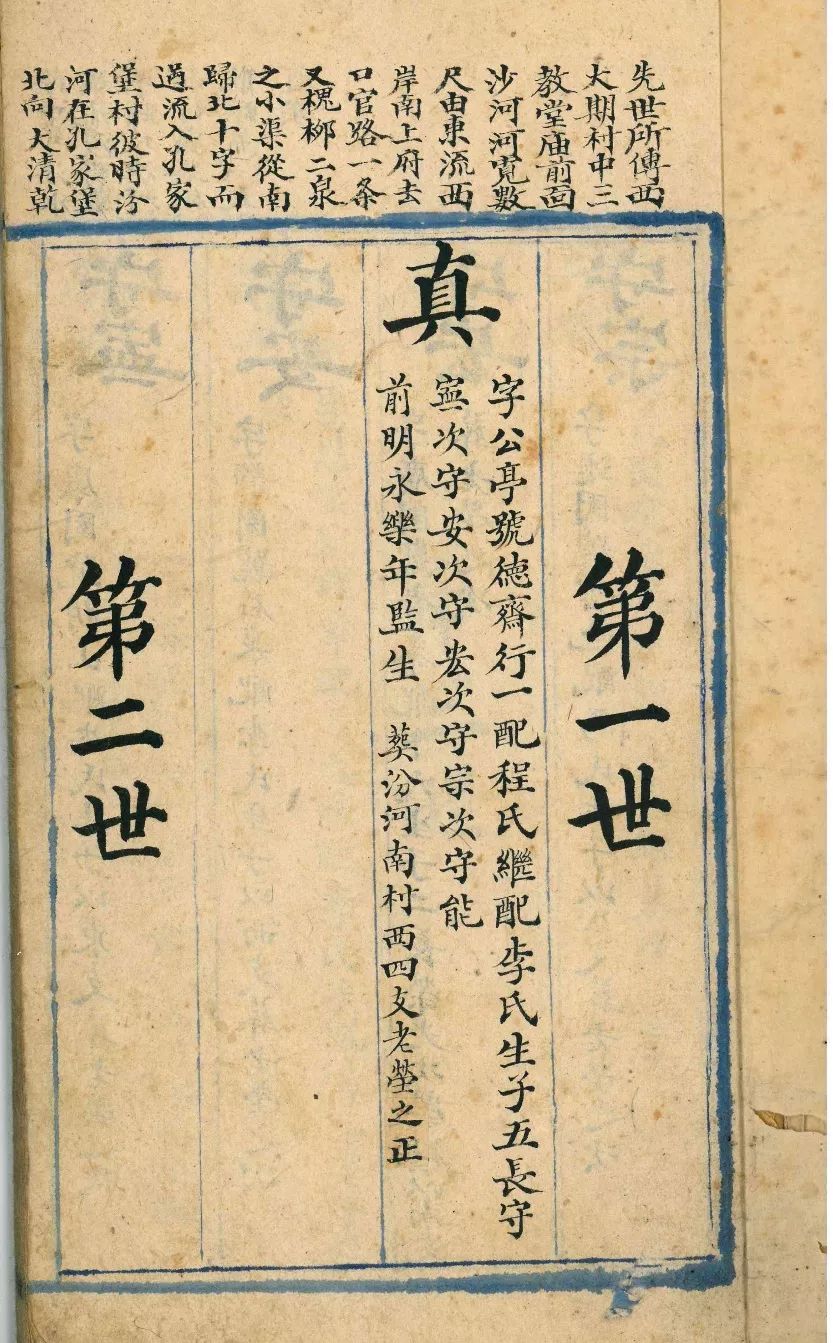 先世所傳西
大期村中三
教堂庙前面
沙河河寛數
尺由東流西
岸南上府去
口官路一条
又槐柳二泉
之小渠從南
歸北十字而
過流入孔家
堡村彼時汾
河在孔家堡
北向大清乾
第一世
真
字公亭號德齋行一配程氏繼配李氏生子五長守
寍次守安次守宏次守宗次守能
前明永樂年監生 葬汾河南村西四支老塋之正
第二世